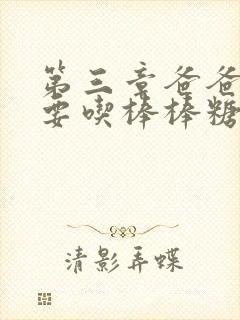 第三章爸爸
要喫棒棒糖
清影弄蝶